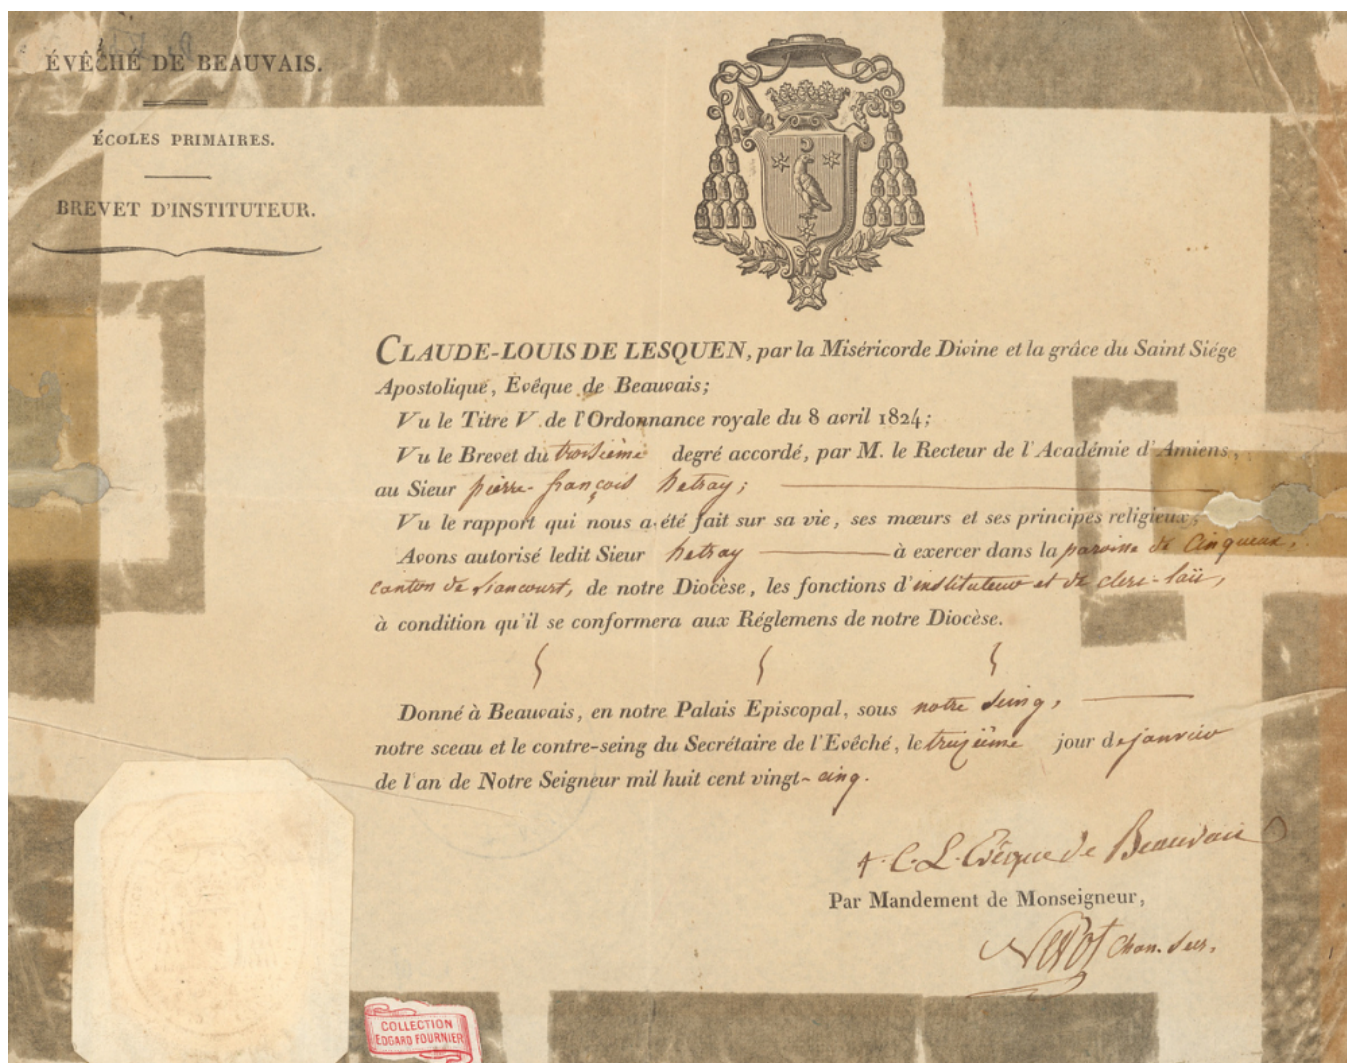 ÉVÊCHÉ DE BEAUVAIS.
ÉCOLES PRIMAIRES.
BREVET D'INSTITUTEUR.
CLAUDE-LOUIS DE LESQUEN, par la Miséricorde Divine et la grâce du Saint Siége
Apostolique, Evêque de Beauvais;
Vu le Titre V de l'Ordonnance royale du 8 avril 1824;
Vu le Brevet du troisième degré accordé, par M. le Recteur de l'Académie d'Amiens,
au Sieur pierre-françois hetray;
Vu le rapport qui nous a été fait sur sa vie, ses mœurs et ses principes religieux,
Avons autorisé ledit Sieur hetray à exercer dans la paroisse de Cinqueux,
canton de Liancourt, de notre Diocèse, les fonctions d'instituteur et de clerc-laïc,
à condition qu'il se conformera aux Réglemens de notre Diocèse.
Donné à Beauvais, en notre Palais Episcopal, sous notre seing,
notre sceau et le contre-seing du Secrétaire de l'Evêché, le treizième jour de janvier
de l'an de Notre Seigneur mil huit cent vingt-cinq.
+ C. L. Evêque de Beauvais
Par Mandement de Monseigneur,
Chan. Secr.
COLLECTION
EDGARD FOURNIER